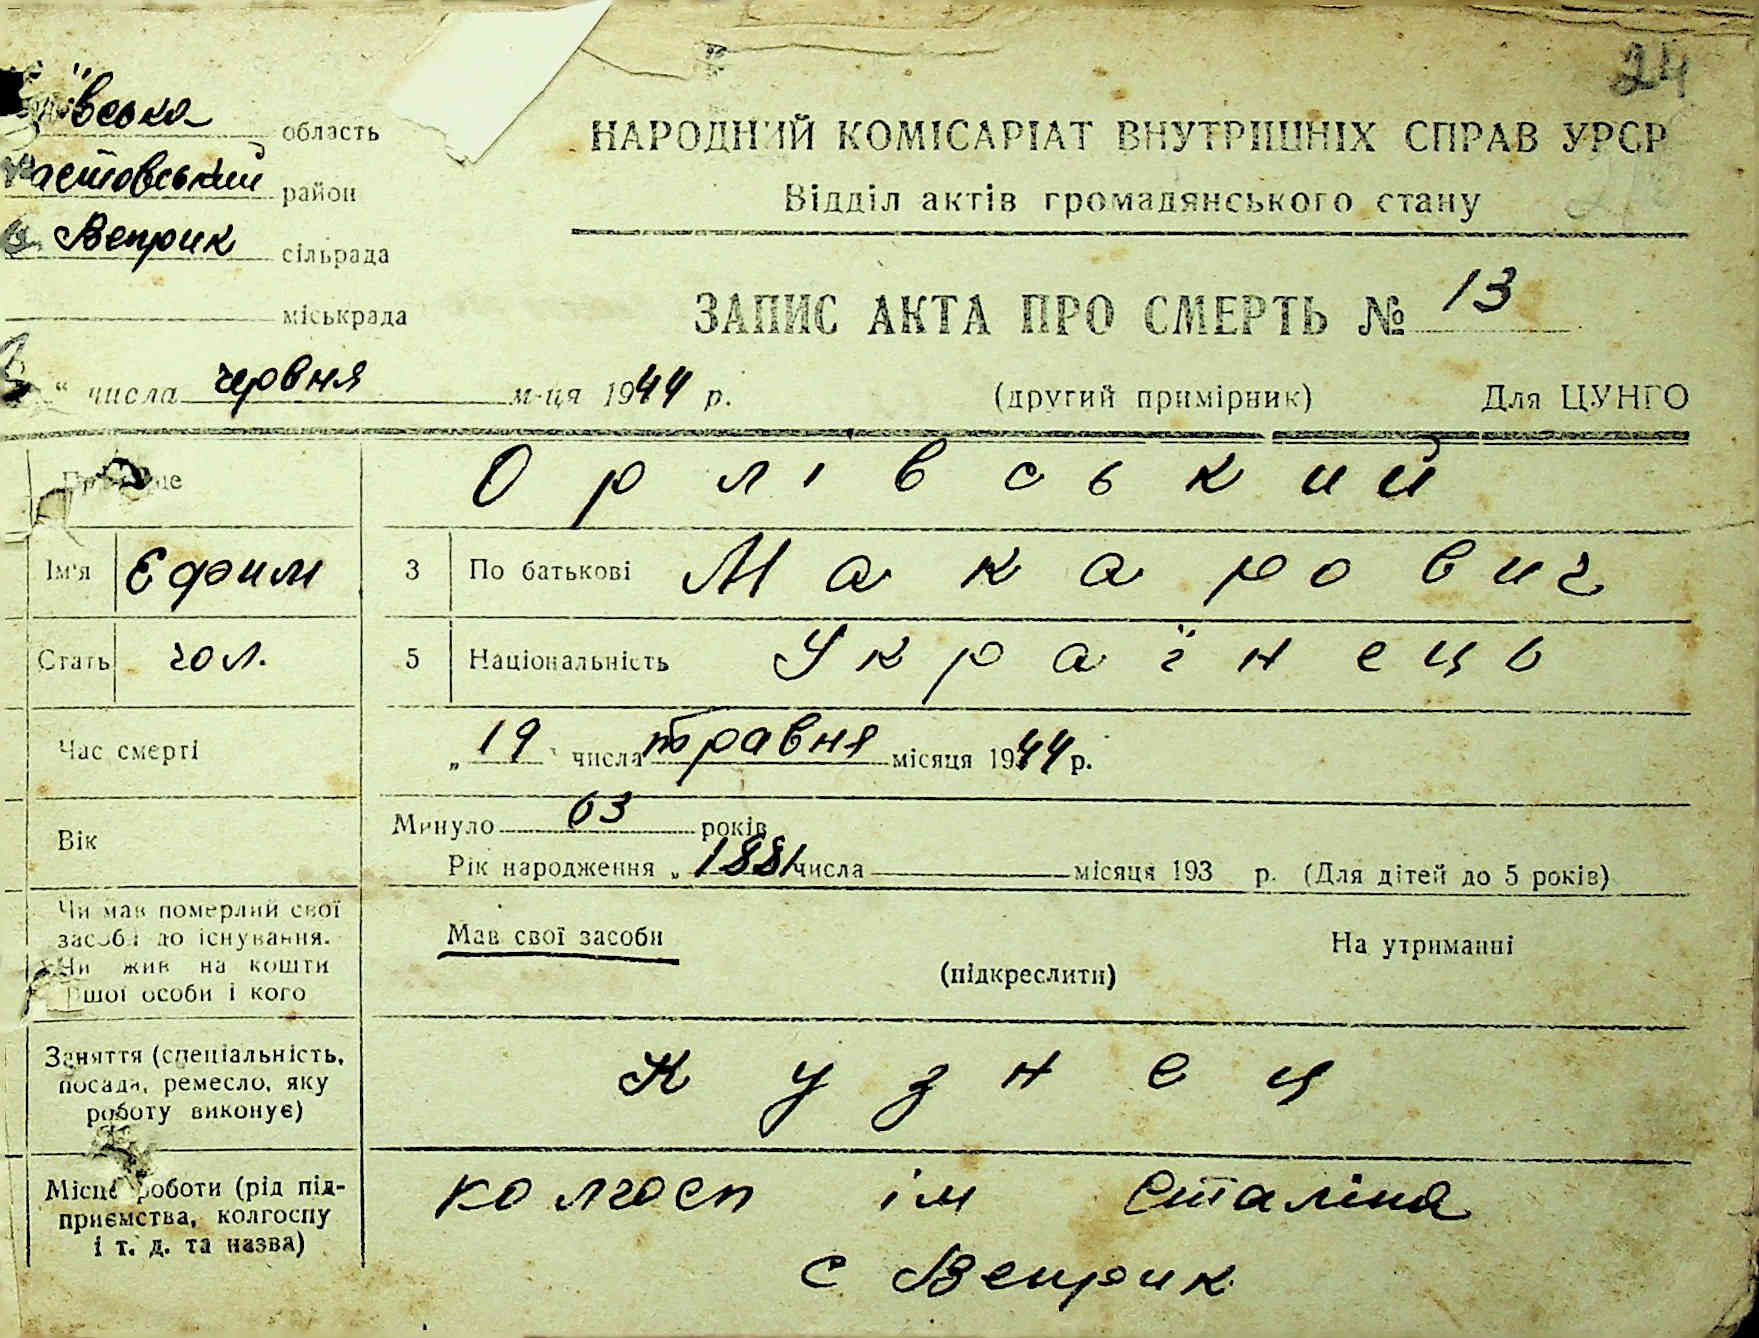 24
ївська область
НАРОДНИЙ КОМІСАРІАТ ВНУТРІШНІХ СПРАВ УРСР
Фастовський район
Відділ актів громадянського стану
с. Веприк сільрада
міськрада
ЗАПИС АКТА ПРО СМЕРТЬ № 13
" числа червня м-ця 1944 р.
(другий примірник) Для ЦУНГО
Прізвище Орлівський
Ім'я Єфим 3 По батькові Макарович
Стать чол. 5 Національність Українець
Час смерті „19" числа травня місяця 1944 р.
Вік
Минуло 63 років
Рік народження „1881 числа місяця 193 р. (Для дітей до 5 років)
Чи мав померлий свої
засоби до існування.
Чи жив на кошти
іншої особи і кого
Мав свої засоби
На утриманні
(підкреслити)
Заняття (спеціальність,
посада, ремесло, яку
роботу виконує)
Кузнец
Місце роботи (рід під-
приємства, колгоспу
і т. д. та назва)
колгосп ім Сталіна
с Веприк